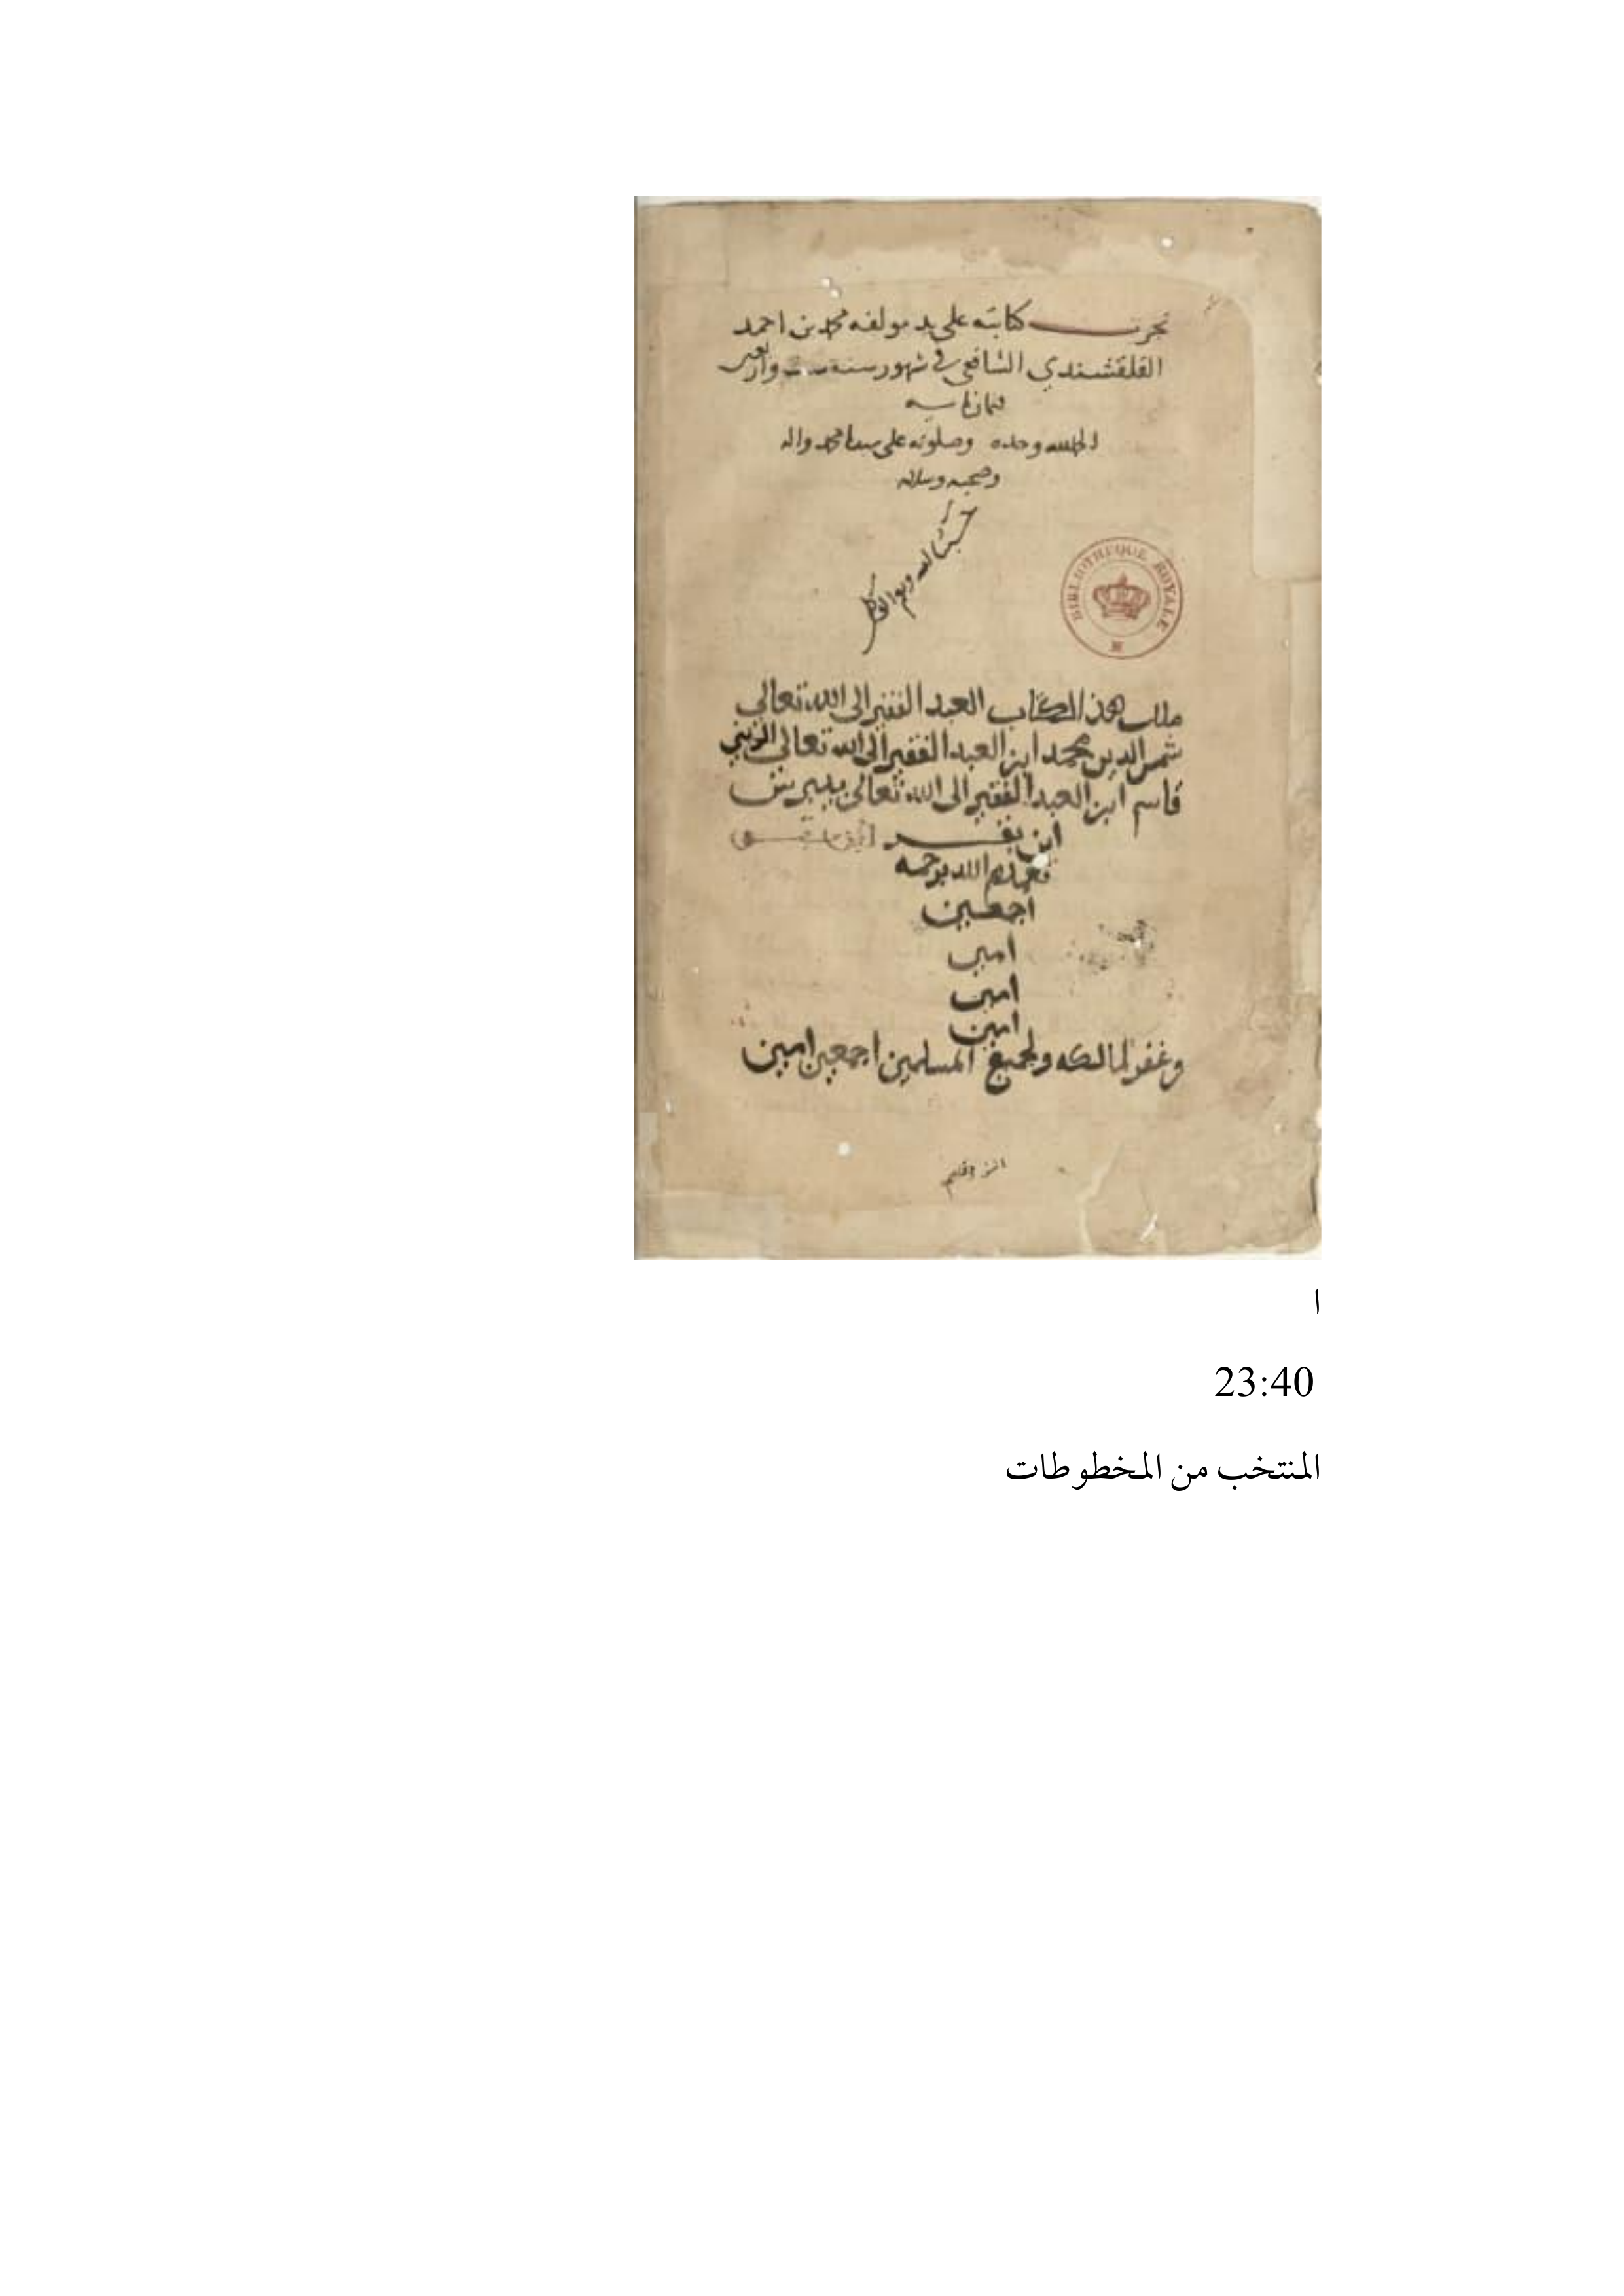 نجزت كتابته على يد مولفه محمد بن احمد
القلقشندي الشافعي في شهور سنة ست واربعين
وثمان مايه
الحمد لله وحده وصلوته على سيدنا محمد واله
وصحبه وسلامه
حسبنا الله ونعم الوكيل
BIBLIOTHEQUE ROYALE
ملك هذا الكتاب العبد الفقير الى الله تعالى
شمس الدين محمد ابن العبد الفقير الى الله تعالى الزيني
قاسم ابن العبد الفقير الى الله تعالى بيبرس
ابن بقر
تغمدهم الله برحمته
أجمعين
امين
امين
امين
وغفر لمالكه ولجميع المسلمين اجمعين امين
ا
23:40
المنتخب من المخطوطات